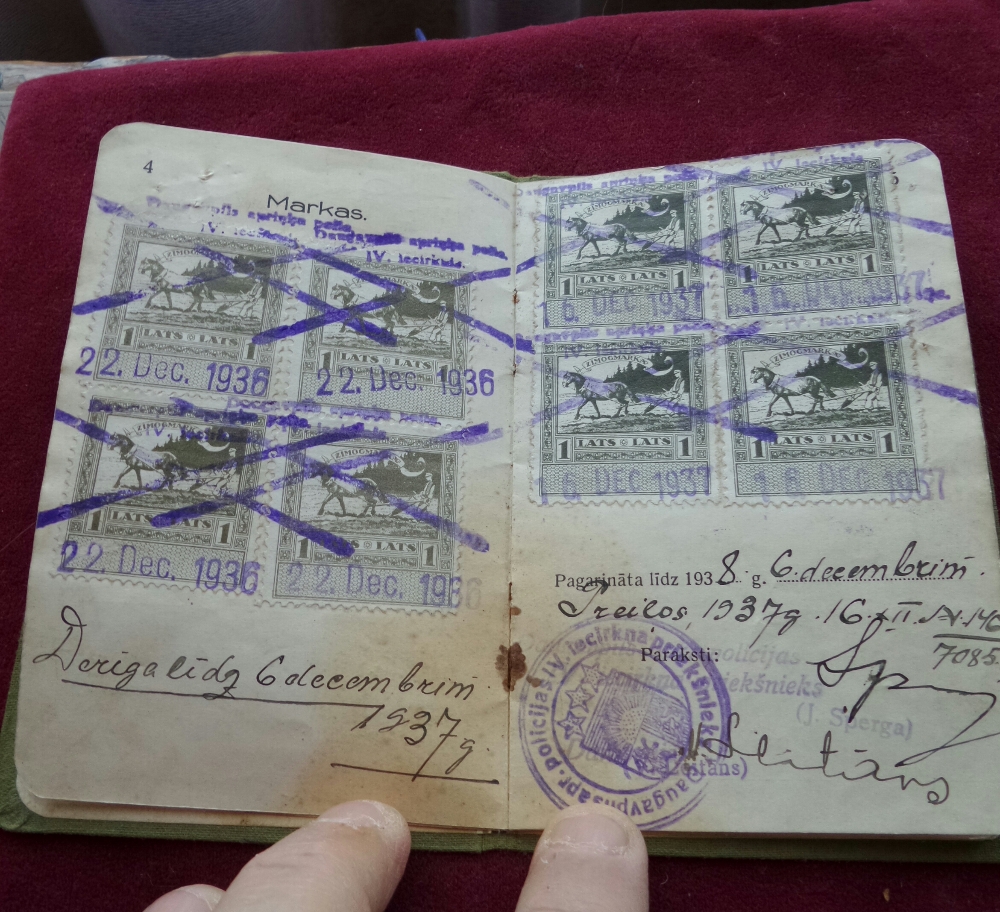 4
Markas.
Daugavpils apriņķa polic.
IV. iecirknis.
Daugavpils apriņķa polic.
IV. iecirknis.
ZĪMOGMARKA
1 LATS LATS 1
22. Dec. 1936
1 LATS LATS 1
22. Dec. 1936
ZĪMOGMARKA
1 LATS LATS 1
22. Dec. 1936
ZĪMOGMARKA
1 LATS LATS 1
22. Dec. 1936
Derīga līdz 6 decembrim
1937 g.
5
Daugavpils apriņķa
IV. iecirknis
ZĪMOGMARKA
1 LATS LATS 1
16. DEC 1937
ZĪMOGMARKA
1 LATS LATS 1
16. 1937
ZĪMOGMARKA
1 LATS LATS 1
16. DEC 1937
ZĪMOGMARKA
1 LATS LATS 1
16. DEC 1937
Pagarināta līdz 1938. g. 6. decembrim.
Preiļos, 1937 g. 16. XII. 
7085
Paraksti:
policijas
priekšnieks
(J. Sperga)
Daugavpils apr. policijas IV. iecirkņa priekšnieks